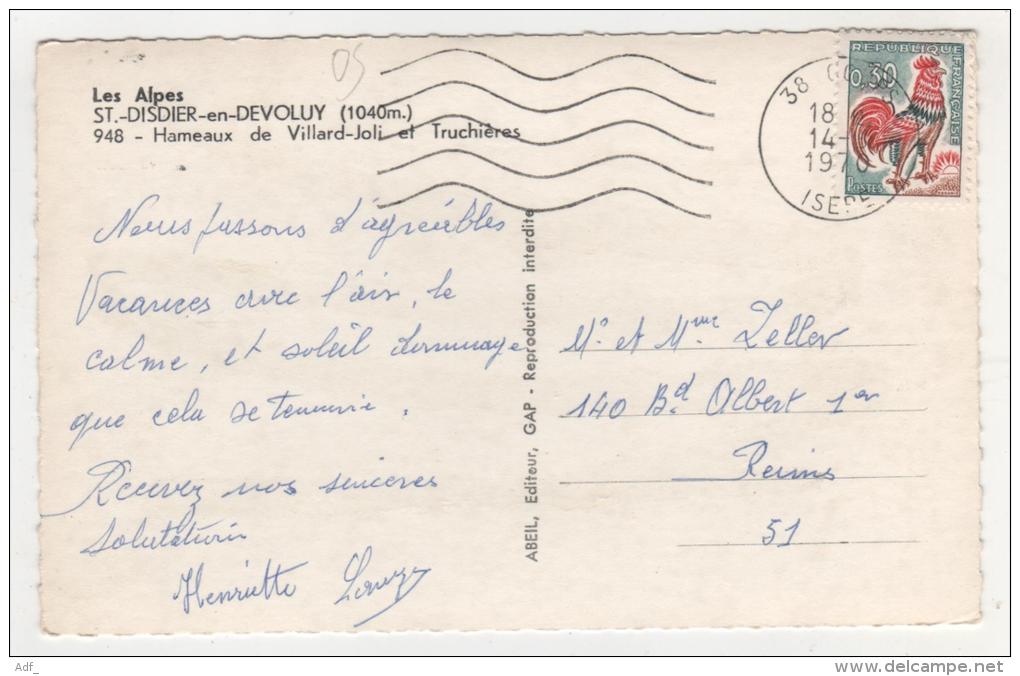 05
Les Alpes
ST.-DISDIER-en-DEVOLUY (1040m.)
948 - Hameaux de Villard-Joli et Truchières
REPUBLIQUE FRANÇAISE
0,30
POSTES
38
18
14-
1970
ISERE
Nous passons d'agréables
Vacances avec l'air, le
calme, et soleil dommage
que cela se termine.
Recevez nos sincères
Salutations
Henriette
ABEIL, Editeur, GAP - Reproduction interdite
Mr et Mme Zeller
140 Bd Albert 1er
Reims
51
Adf_
www.delcampe.net